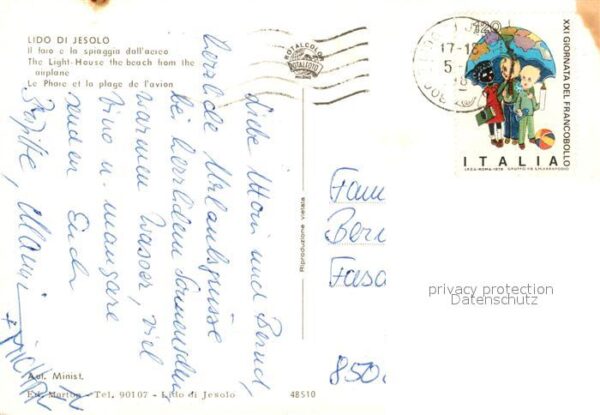 LIDO DI JESOLO
Il faro e la spiaggia dall'aereo
The Light-House the beach from the
airplane
Le Phare et la plage de l'avion
Liebe Moni und Bernd,
herzliche Urlaubsgrüsse
bei herrlichem
warmen Wasser, viel
Vino u. mangare
senden Euch
Manni
+ MICHAEL
Aut. Minist.
Ed. Marton - Tel. 90107 - Lido di Jesolo
48510
Riproduzione vietata
TOTALCOLOR
17-18
5-
120
XXI GIORNATA DEL FRANCOBOLLO
ITALIA
I.P.Z.S.-ROMA-1979
Fam
Bern
Fasa
850
privacy protection
Datenschutz